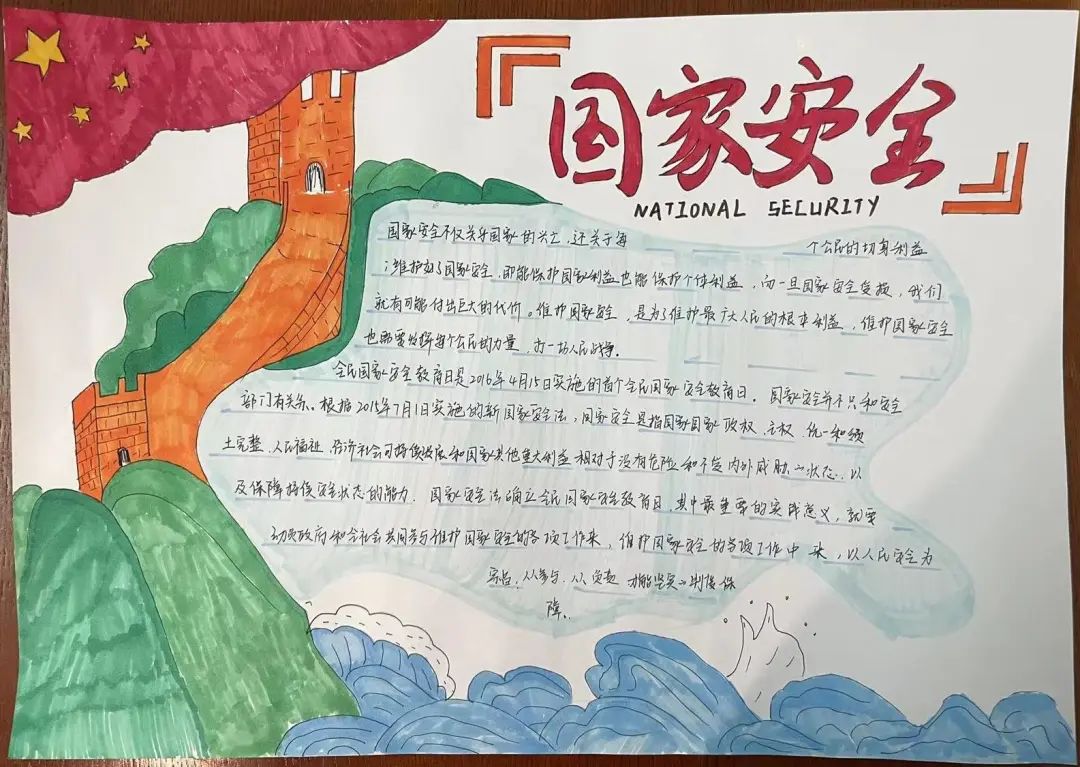 国家安全
NATIONAL SECURITY
国家安全不仅关乎国家的兴亡，还关乎每 个公民的切身利益
；维护好了国家安全，即能保护国家利益也能保护个体利益，而一旦国家安全受损，我们
就有可能付出巨大的代价。维护国家安全，是为了维护最广大人民的根本利益，维护国家安全
也都要发挥每个公民的力量，打一场人民战争。
全民国家安全教育日是2016年4月15日实施的首个全民国家安全教育日。国家安全并不只和安全
部门有关系。根据2015年7月1日实施的新国家安全法，国家安全是指国家国家政权、主权、统一和领
土完整、人民福祉、经济社会可持续发展和国家其他重大利益相对于没有危险和不受内外威胁 状态，以
及保障持续安全状态的能力。国家安全法确立全民国家安全教育日，其中最重要的实践意义，就要
动员政府和全社会共同参与维护国家安全的各项工作来，维护国家安全的各项工作中来，以人民安全为
宗旨，人人参与，人人负责 才能坚实 制度保
障。